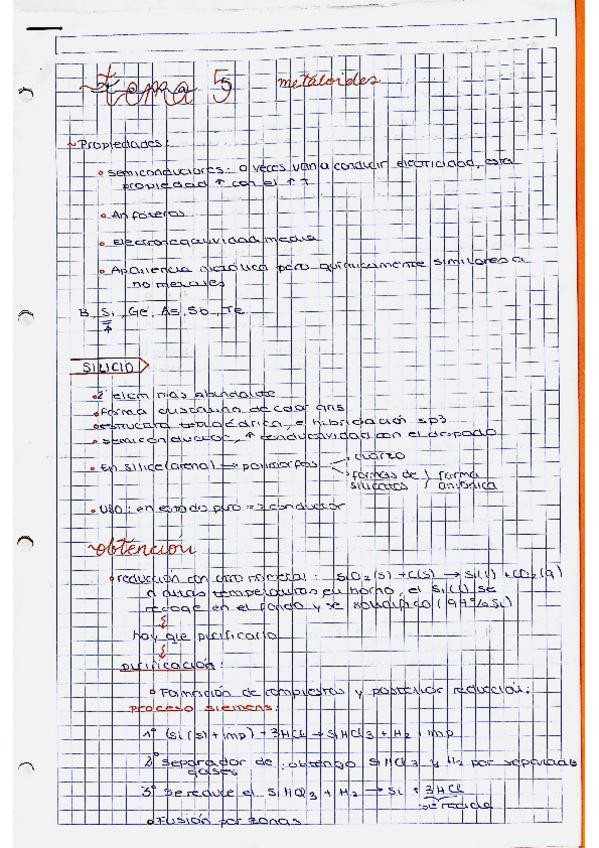 tema 5 metaloides
~Propiedades:
• semiconductores: a veces van a conducir electricidad, esta
propiedad ↑ con el ↑ T
• Anfóteros
• electronegatividad media
• Apariencia metálica pero químicamente similares a
no metales
B, Si, Ge, As, Sb, Te
SILICIO
• 2º elem más abundante
• forma cristalina de color gris
• estructura tetraédrica, e hibridación sp3
• semiconductor, ↑ conductividad con el dopado
• En silice (arena) → polimorfos
cuarzo
formas de silicatos } forma aniónica
• USO: en estado puro => conductor
~obtención
• reducción con otro no metal: SiO2(s) + C(s) → Si(l) + CO2(g)
A altas temperaturas en horno, el Si(l) se
recoge en el fondo y se solidifica ( % Si)
hay que purificarlo
purificación:
• Formación de compuestos y posterior reducción:
proceso siemens:
1º (Si(s) + imp) + 3HCl → SiHCl3 + H2 + imp
2º Separador de gases: obtengo SiHCl3 y H2 por separado
3º Se reduce el SiHCl3 + H2 → Si + 3HCl
se recicla
• Fusión por zonas